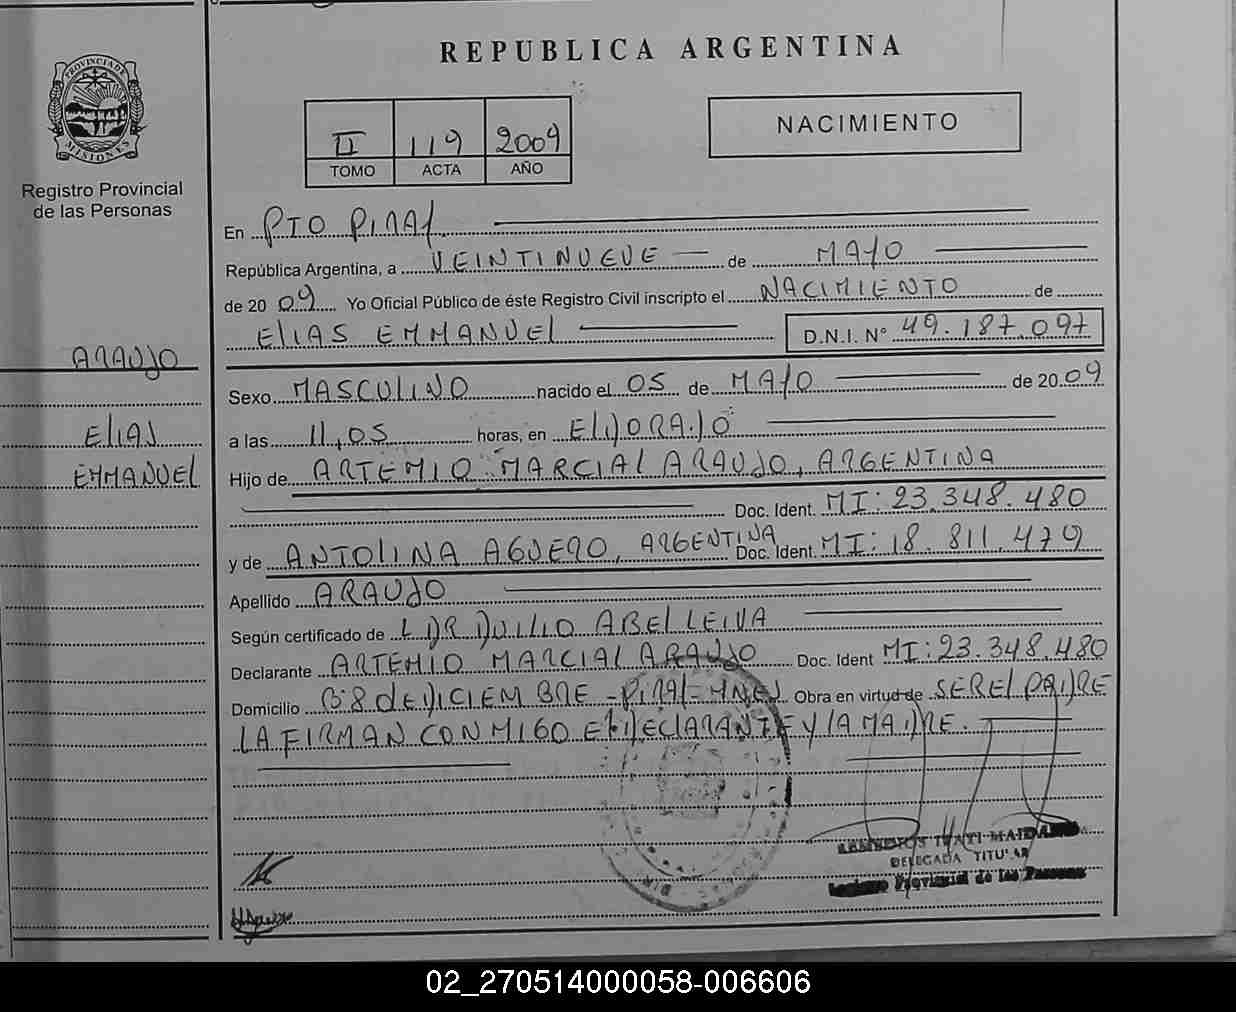 REPUBLICA ARGENTINA
PROVINCIA DE
MISIONES
Registro Provincial
de las Personas
II 119 2009
TOMO ACTA AÑO
NACIMIENTO
En PTO PIRAY
República Argentina, a VEINTINUEVE de MAYO
de 20 09 Yo Oficial Público de éste Registro Civil inscripto el NACIMIENTO de
ELIAS EMMANUEL D.N.I. Nº 49.187.097
ARAUJO
ELIAS
EMMANUEL
Sexo MASCULINO nacido el 05 de MAYO de 20 09
a las 11,05 horas, en ELDORADO
Hijo de ARTEMIO MARCIAL ARAUJO, ARGENTINA
Doc. Ident. MI: 23.348.480
y de ANTOLINA AGUERO, ARGENTINA Doc. Ident. MI: 18.811.479
Apellido ARAUJO
Según certificado de L DR DUILIO ABEL LEIVA
Declarante ARTEMIO MARCIAL ARAUJO Doc. Ident MI: 23.348.480
Domicilio Bº 8 de DICIEMBRE - PIRAY - MNES Obra en virtud de SER EL PADRE
LA FIRMAN CONMIGO EL DECLARANTE Y LA MADRE.
DELEGADA TITULAR
Registro Provincial de las Personas
02_270514000058-006606